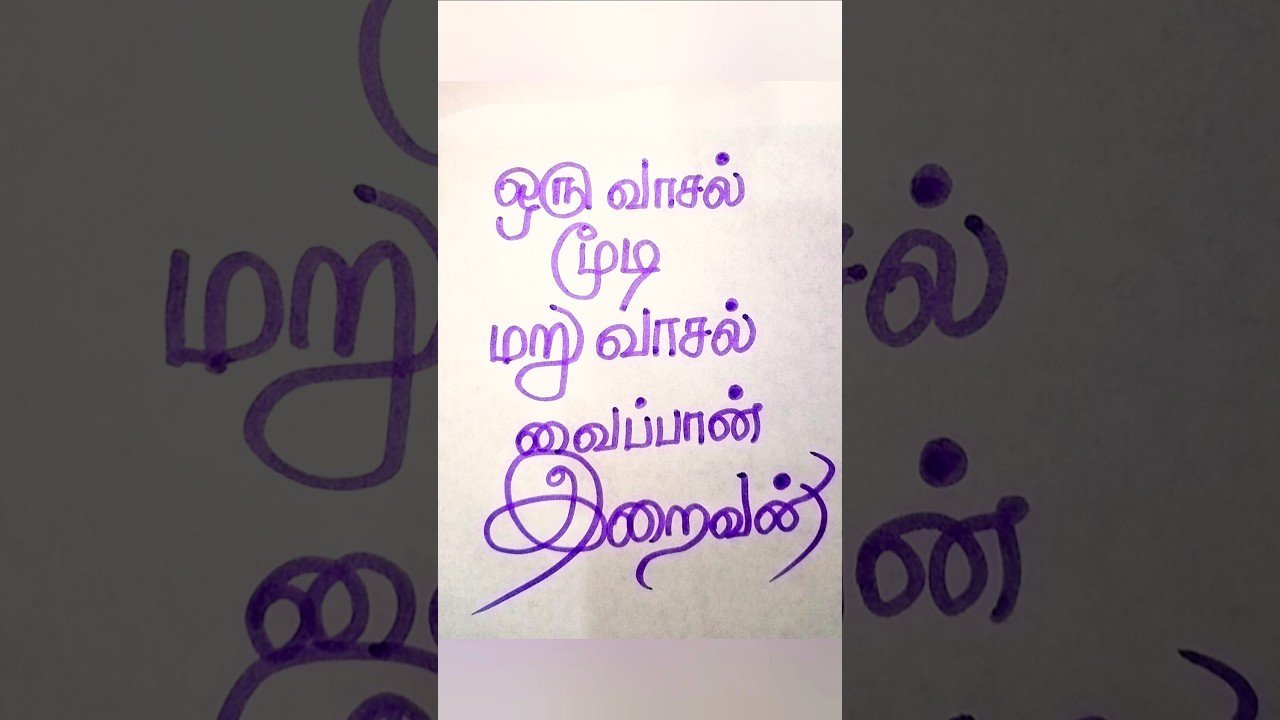 ஒரு வாசல்
மூடி
மறு வாசல்
வைப்பான்
இறைவன்